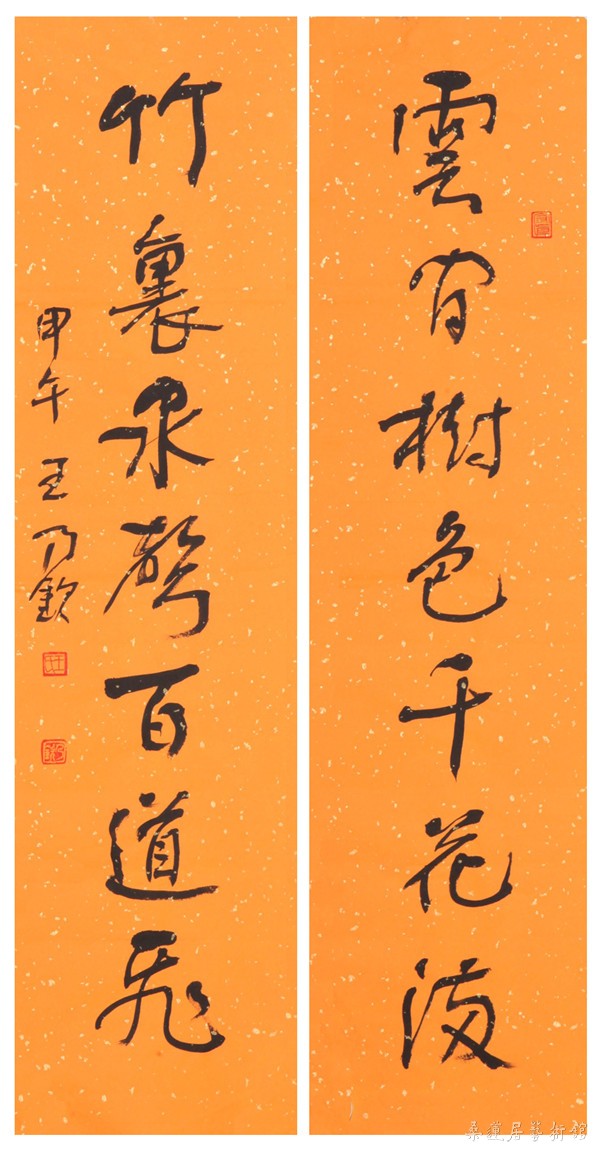 雲間樹色千花滿
竹裏泉聲百道飛
甲午 王乃欽
桑蓮居藝術館